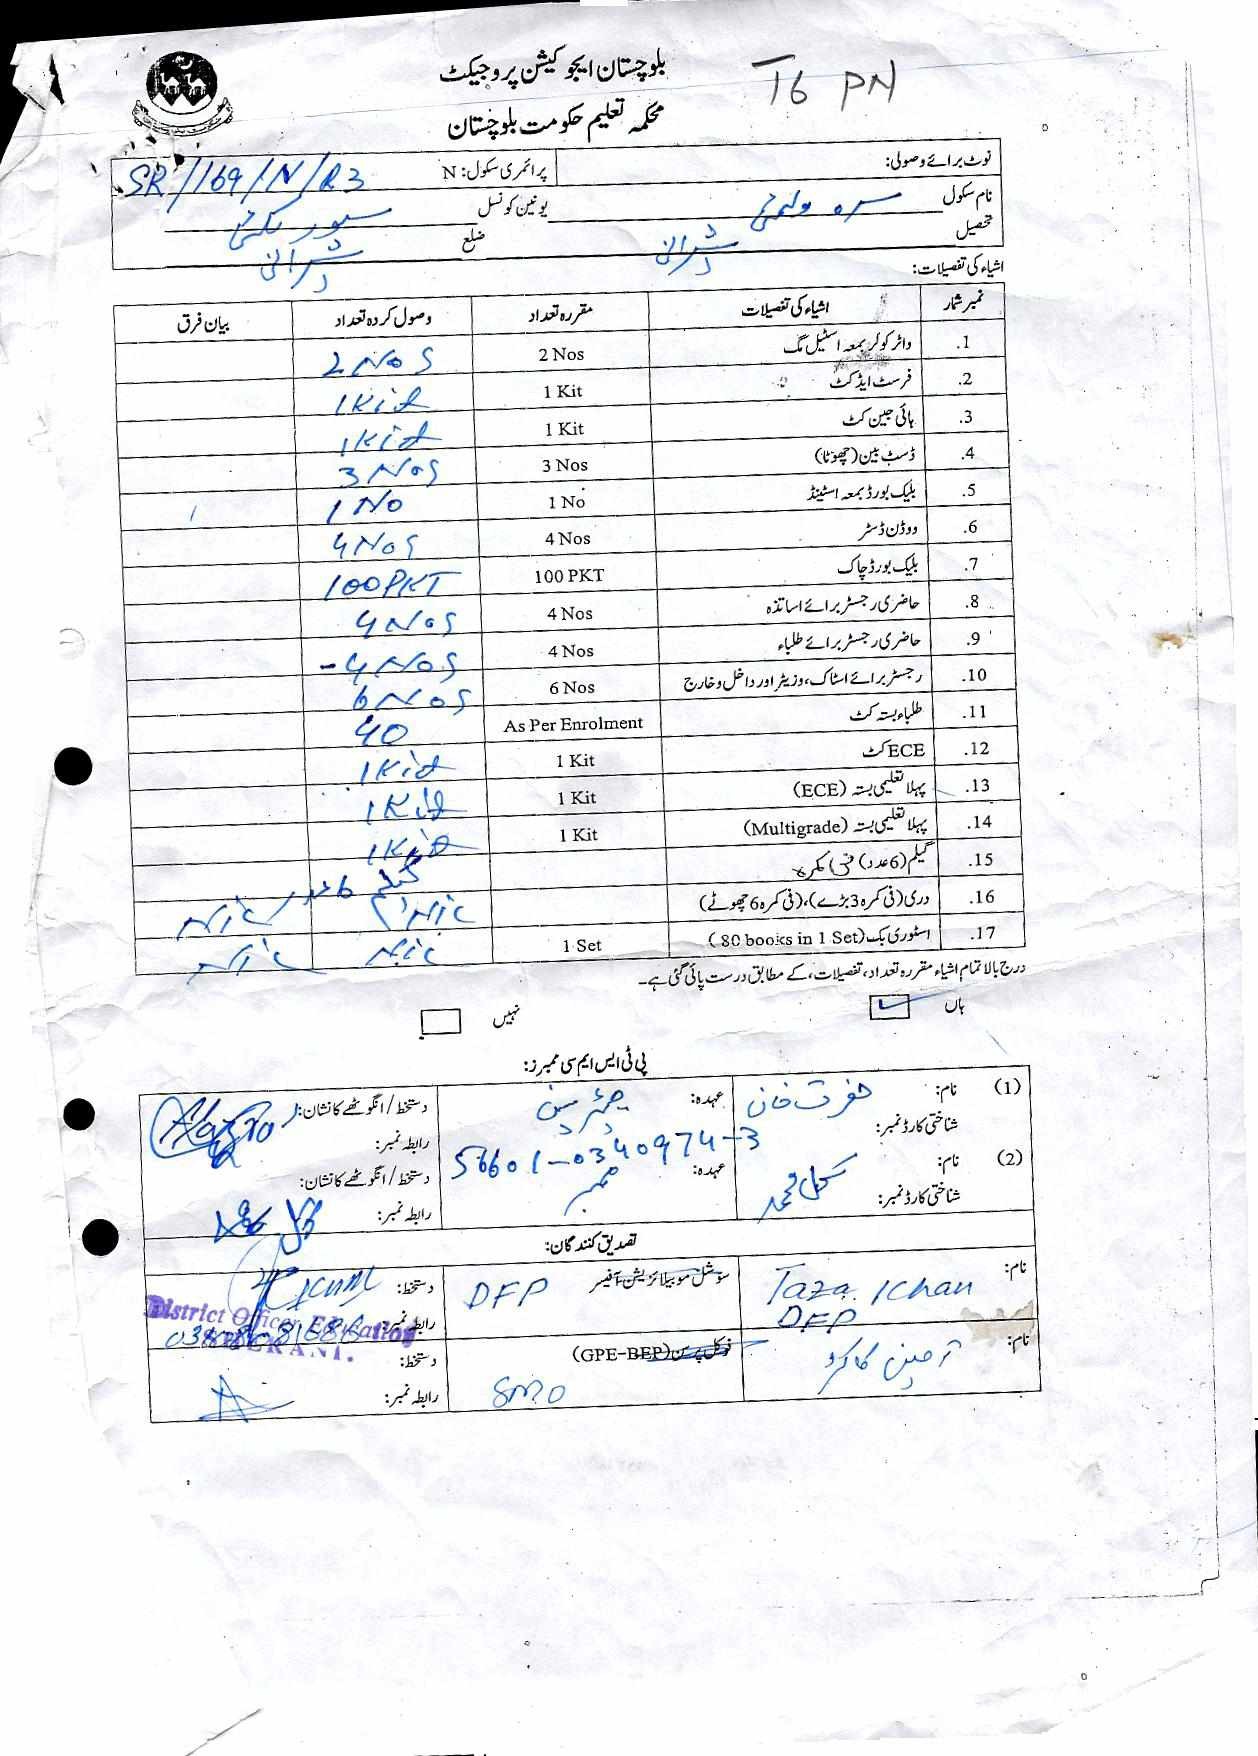 بلوچستان ایجوکیشن پروجیکٹ
T6 PN
محکمہ تعلیم حکومت بلوچستان
نوٹ برائے وصولی:
پرائمری سکول: N SR/169/N/R3
نام سکول سرہ یونین کونسل
تحصیل شرانی ضلع شرانی
اشیاء کی تفصیلات:
نمبر شمار اشیاء کی تفصیلات مقررہ تعداد وصول کردہ تعداد بیان فرق
1. واٹر کولر بمعہ اسٹیل مگ 2 Nos 2 Nos
2. فرسٹ ایڈ کٹ 1 Kit 1 Kit
3. ہائی جین کٹ 1 Kit 1 Kit
4. ڈسٹ بین (چھوٹا) 3 Nos 3 Nos
5. بلیک بورڈ بمعہ اسٹینڈ 1 No 1 No
6. ووڈن ڈسٹر 4 Nos 4 Nos
7. بلیک بورڈ چاک 100 PKT 100 PKT
8. حاضری رجسٹر برائے اساتذہ 4 Nos 4 Nos
9. حاضری رجسٹر برائے طلباء 4 Nos 4 Nos
10. رجسٹر برائے اسٹاک، وزیٹر اور داخل و خارج 6 Nos 6 Nos
11. طلباء بستہ کٹ As Per Enrolment 40
12. ECE کٹ 1 Kit 1 Kit
13. پہلا تعلیمی بستہ (ECE) 1 Kit 1 Kit
14. پہلا تعلیمی بستہ (Multigrade) 1 Kit 1 Kit
15. گلیم (6 عدد) فی کمرہ گلیم 6 عدد
16. دری (فی کمرہ 3 بڑے)، (فی کمرہ 6 چھوٹے) Nil Nil
17. اسٹوری بک (80 books in 1 Set) 1 Set Nil Nil
درج بالا تمام اشیاء مقررہ تعداد، تفصیلات، کے مطابق درست پائی گئی ہے۔
ہاں نہیں
پی ٹی ایس ایم سی ممبرز:
(1) نام: حضرت خان عہدہ: چیئرمین دستخط/انگوٹھے کا نشان:
شناختی کارڈ نمبر: 56601-0340974-3 رابطہ نمبر:
(2) نام: گل محمد عہدہ: ممبر دستخط/انگوٹھے کا نشان:
شناختی کارڈ نمبر: رابطہ نمبر:
تصدیق کنندگان:
نام: Taza Khan سوشل موبیلائزیشن آفیسر DFP دستخط:
DFP رابطہ نمبر:
District Officer Education
SHERANI.
نام: کاکڑ فوکل پرسن (GPE-BEP) دستخط:
SMO رابطہ نمبر: